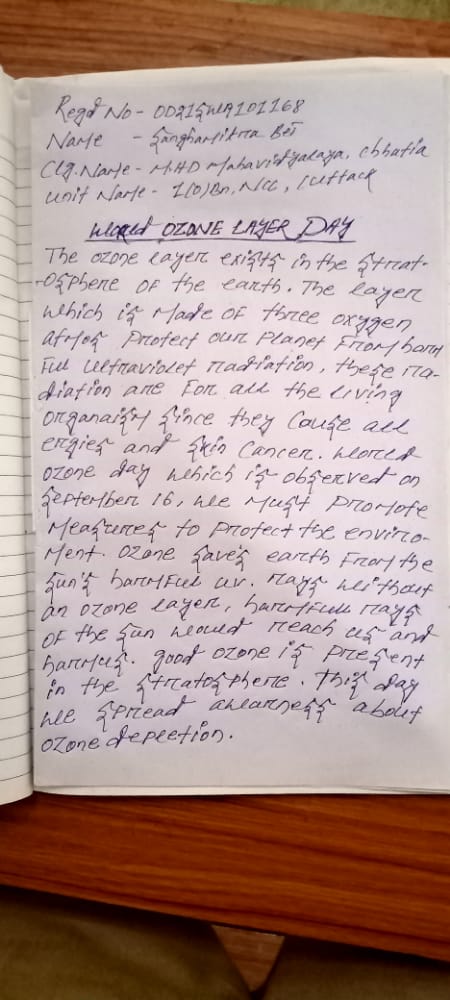 Regd No - OD21SWA101168
Name - Sanghamitra Bei
Clg. Name - M.H.D Mahavidyalaya, Chhatia
Unit Name - 1(O)Bn, NCC, Cuttack
World OZONE LAYER DAY
The ozone layer exists in the strat-
-osphere of the earth. The layer
which is made of three oxygen
atmos protect our planet from harm
ful ultraviolet radiation, these ra-
diation are for all the living
organaism since they cause all
ergies and skin cancer. World
ozone day which is observed on
September 16, we must promote
measures to protect the enviro-
ment. Ozone saves earth from the
sun's harmful uv. rays without
an ozone layer, harmfull rays
of the sun would reach us and
harmus. good ozone is present
in the stratosphere. This day
we spread awarness about
ozone depeetion.